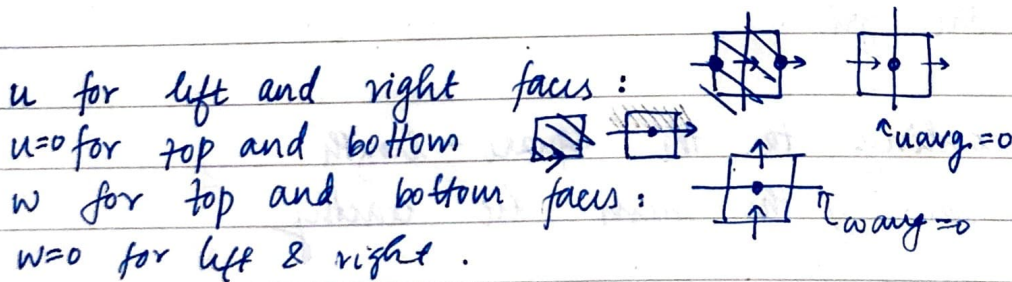 u for left and right faces :
u=0 for top and bottom
uavg=0
w for top and bottom faces :
wavg=0
w=0 for left & right .